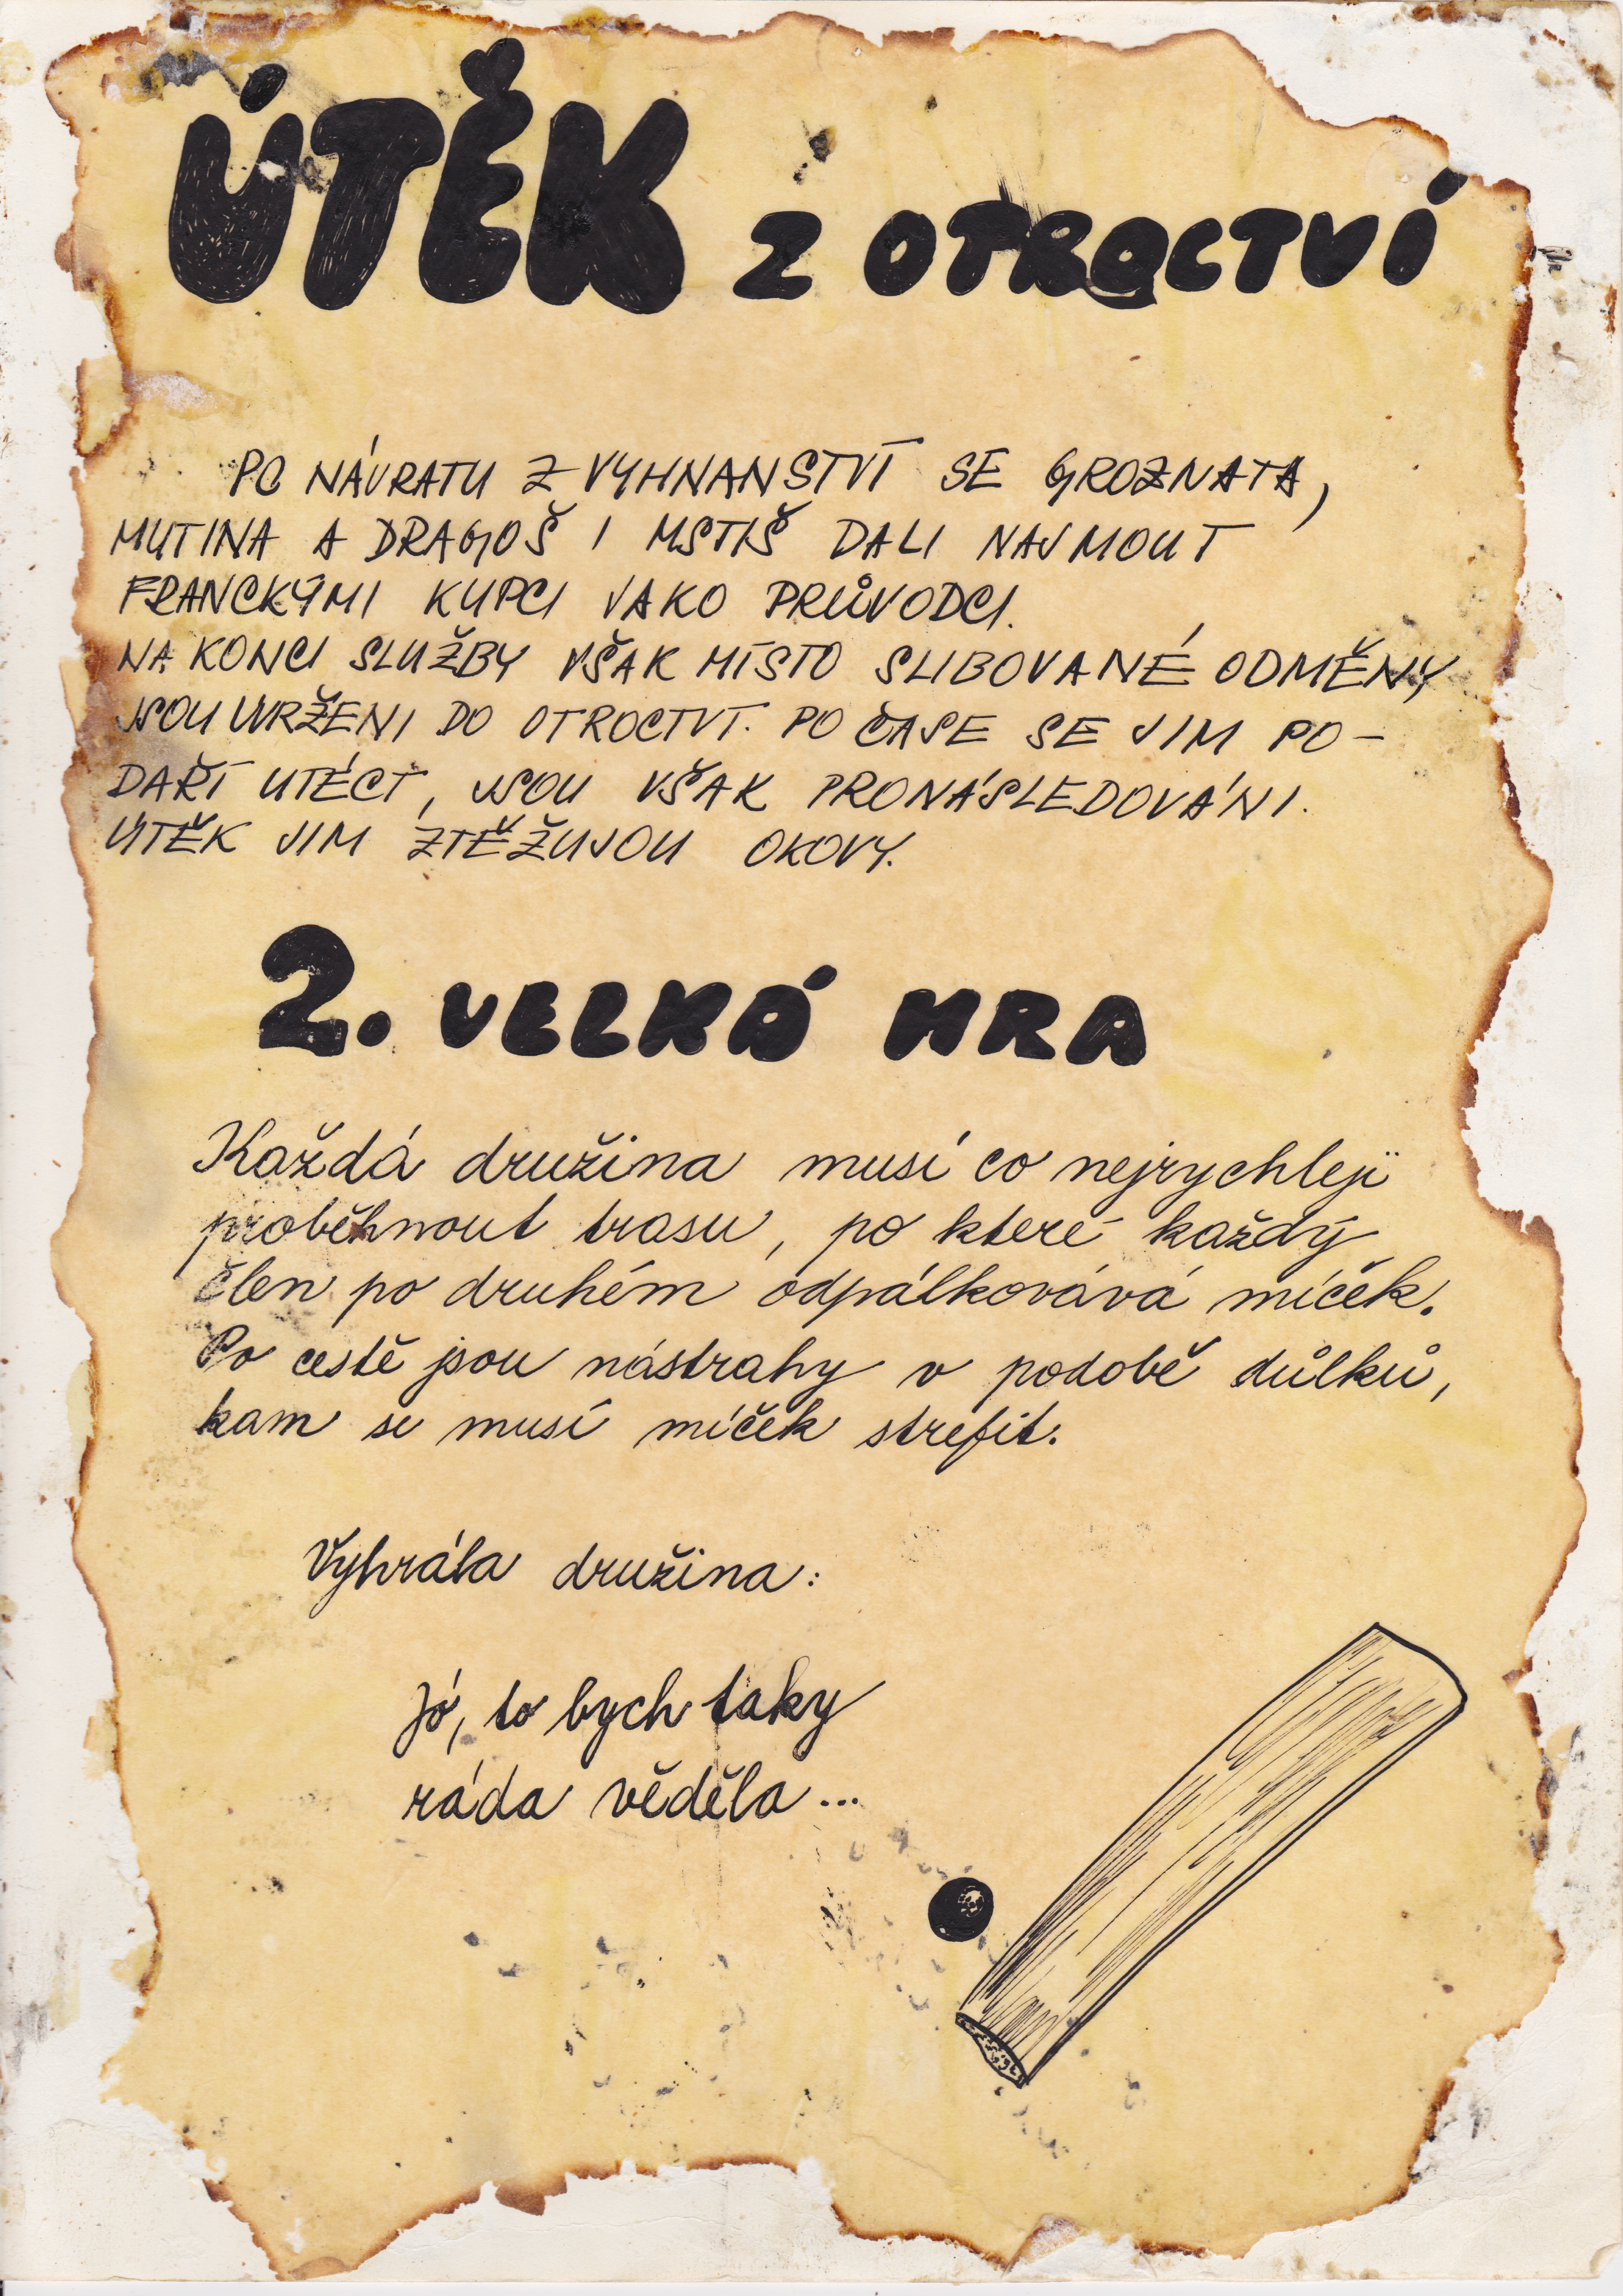 ÚTĚK Z OTROCTVÍ
PO NÁVRATU Z VYHNANSTVÍ SE GROZNATA,
MUTINA A DRAGOŠ I MSTIŠ DALI NAJMOUT
FRANCKÝMI KUPCI JAKO PRŮVODCI.
NA KONCI SLUŽBY VŠAK MÍSTO SLIBOVANÉ ODMĚNY
JSOU UVRŽENI DO OTROCTVÍ. PO ČASE SE JIM PO-
DAŘÍ UTÉCT, JSOU VŠAK PRONÁSLEDOVÁNI.
ÚTĚK JIM ZTĚŽUJOU OKOVY.
2. VELKÁ HRA
Každá družina musí co nejrychleji
proběhnout trasu, po které každý
člen po druhém odpálkovává míček.
Po cestě jsou nástrahy v podobě důlků,
kam se musí míček strefit.
Vyhrála družina:
Jó, to bych taky
ráda věděla...